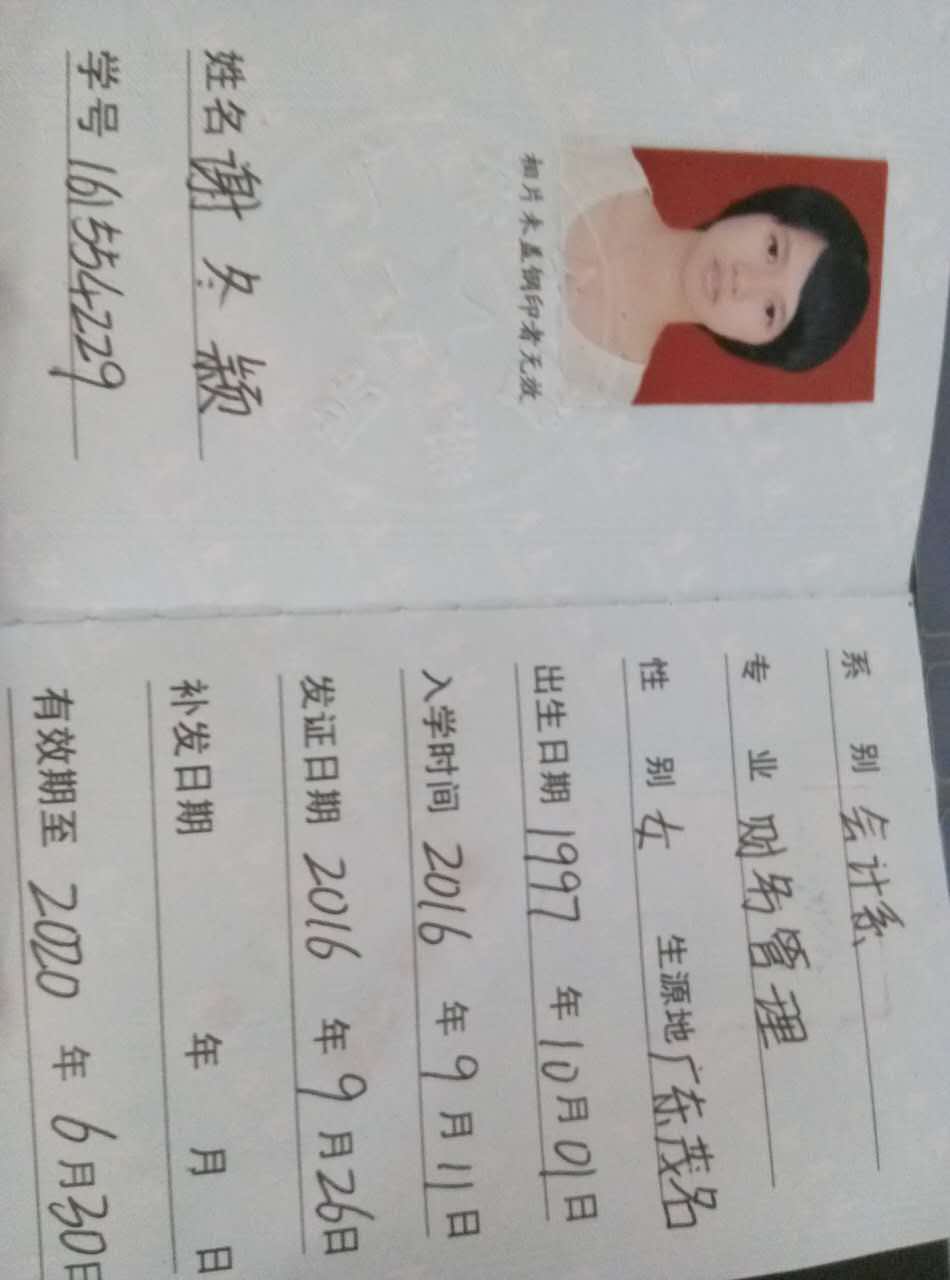 相片未盖钢印者无效
姓名 谢冬颖
学号 161554229
系别 会计系
专业 财务管理
性别 女 生源地 广东茂名
出生日期 1997 年 10 月 01 日
入学时间 2016 年 9 月 11 日
发证日期 2016 年 9 月 26 日
补发日期 年 月 日
有效期至 2020 年 6 月 30 日